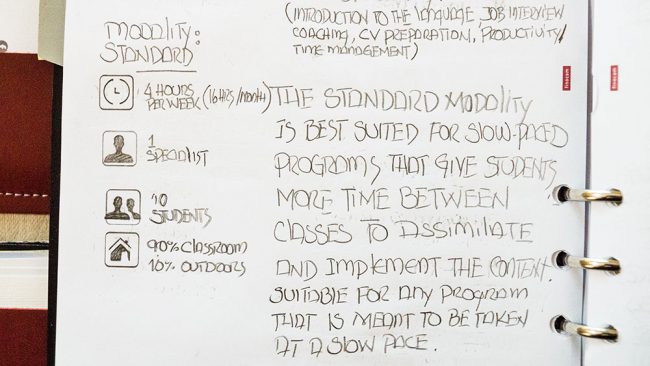 (INTRODUCTION TO THE LANGUAGE, JOB INTERVIEW
COACHING, CV PREPARATION, PRODUCTIVITY/
TIME MANAGEMENT)
MODALITY:
STANDARD
4 HOURS
PER WEEK (16HRS/MONTH)
1
SPECIALIST
10
STUDENTS
90% CLASSROOM
10% OUTDOORS
THE STANDARD MODALITY
IS BEST SUITED FOR SLOW-PACED
PROGRAMS THAT GIVE STUDENTS
MORE TIME BETWEEN
CLASSES TO ASSIMILATE
AND IMPLEMENT THE CONTENT.
SUITABLE FOR ANY PROGRAM
THAT IS MEANT TO BE TAKEN
AT A SLOW PACE.
finocam
finocam